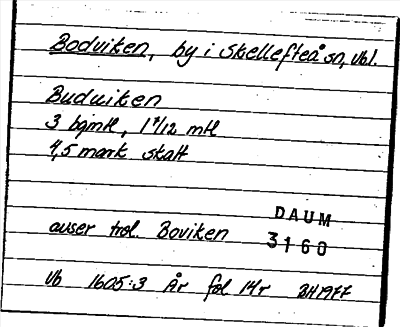 Bodviken, by i Skellefteå sn, Vbl.
Buduiken
3 bgmtl, 1 7/12 mtl
4,5 mark skatt
avser trol. Boviken
DAUM
3160
Vb 1605:3 Är fol 14r BH 1977